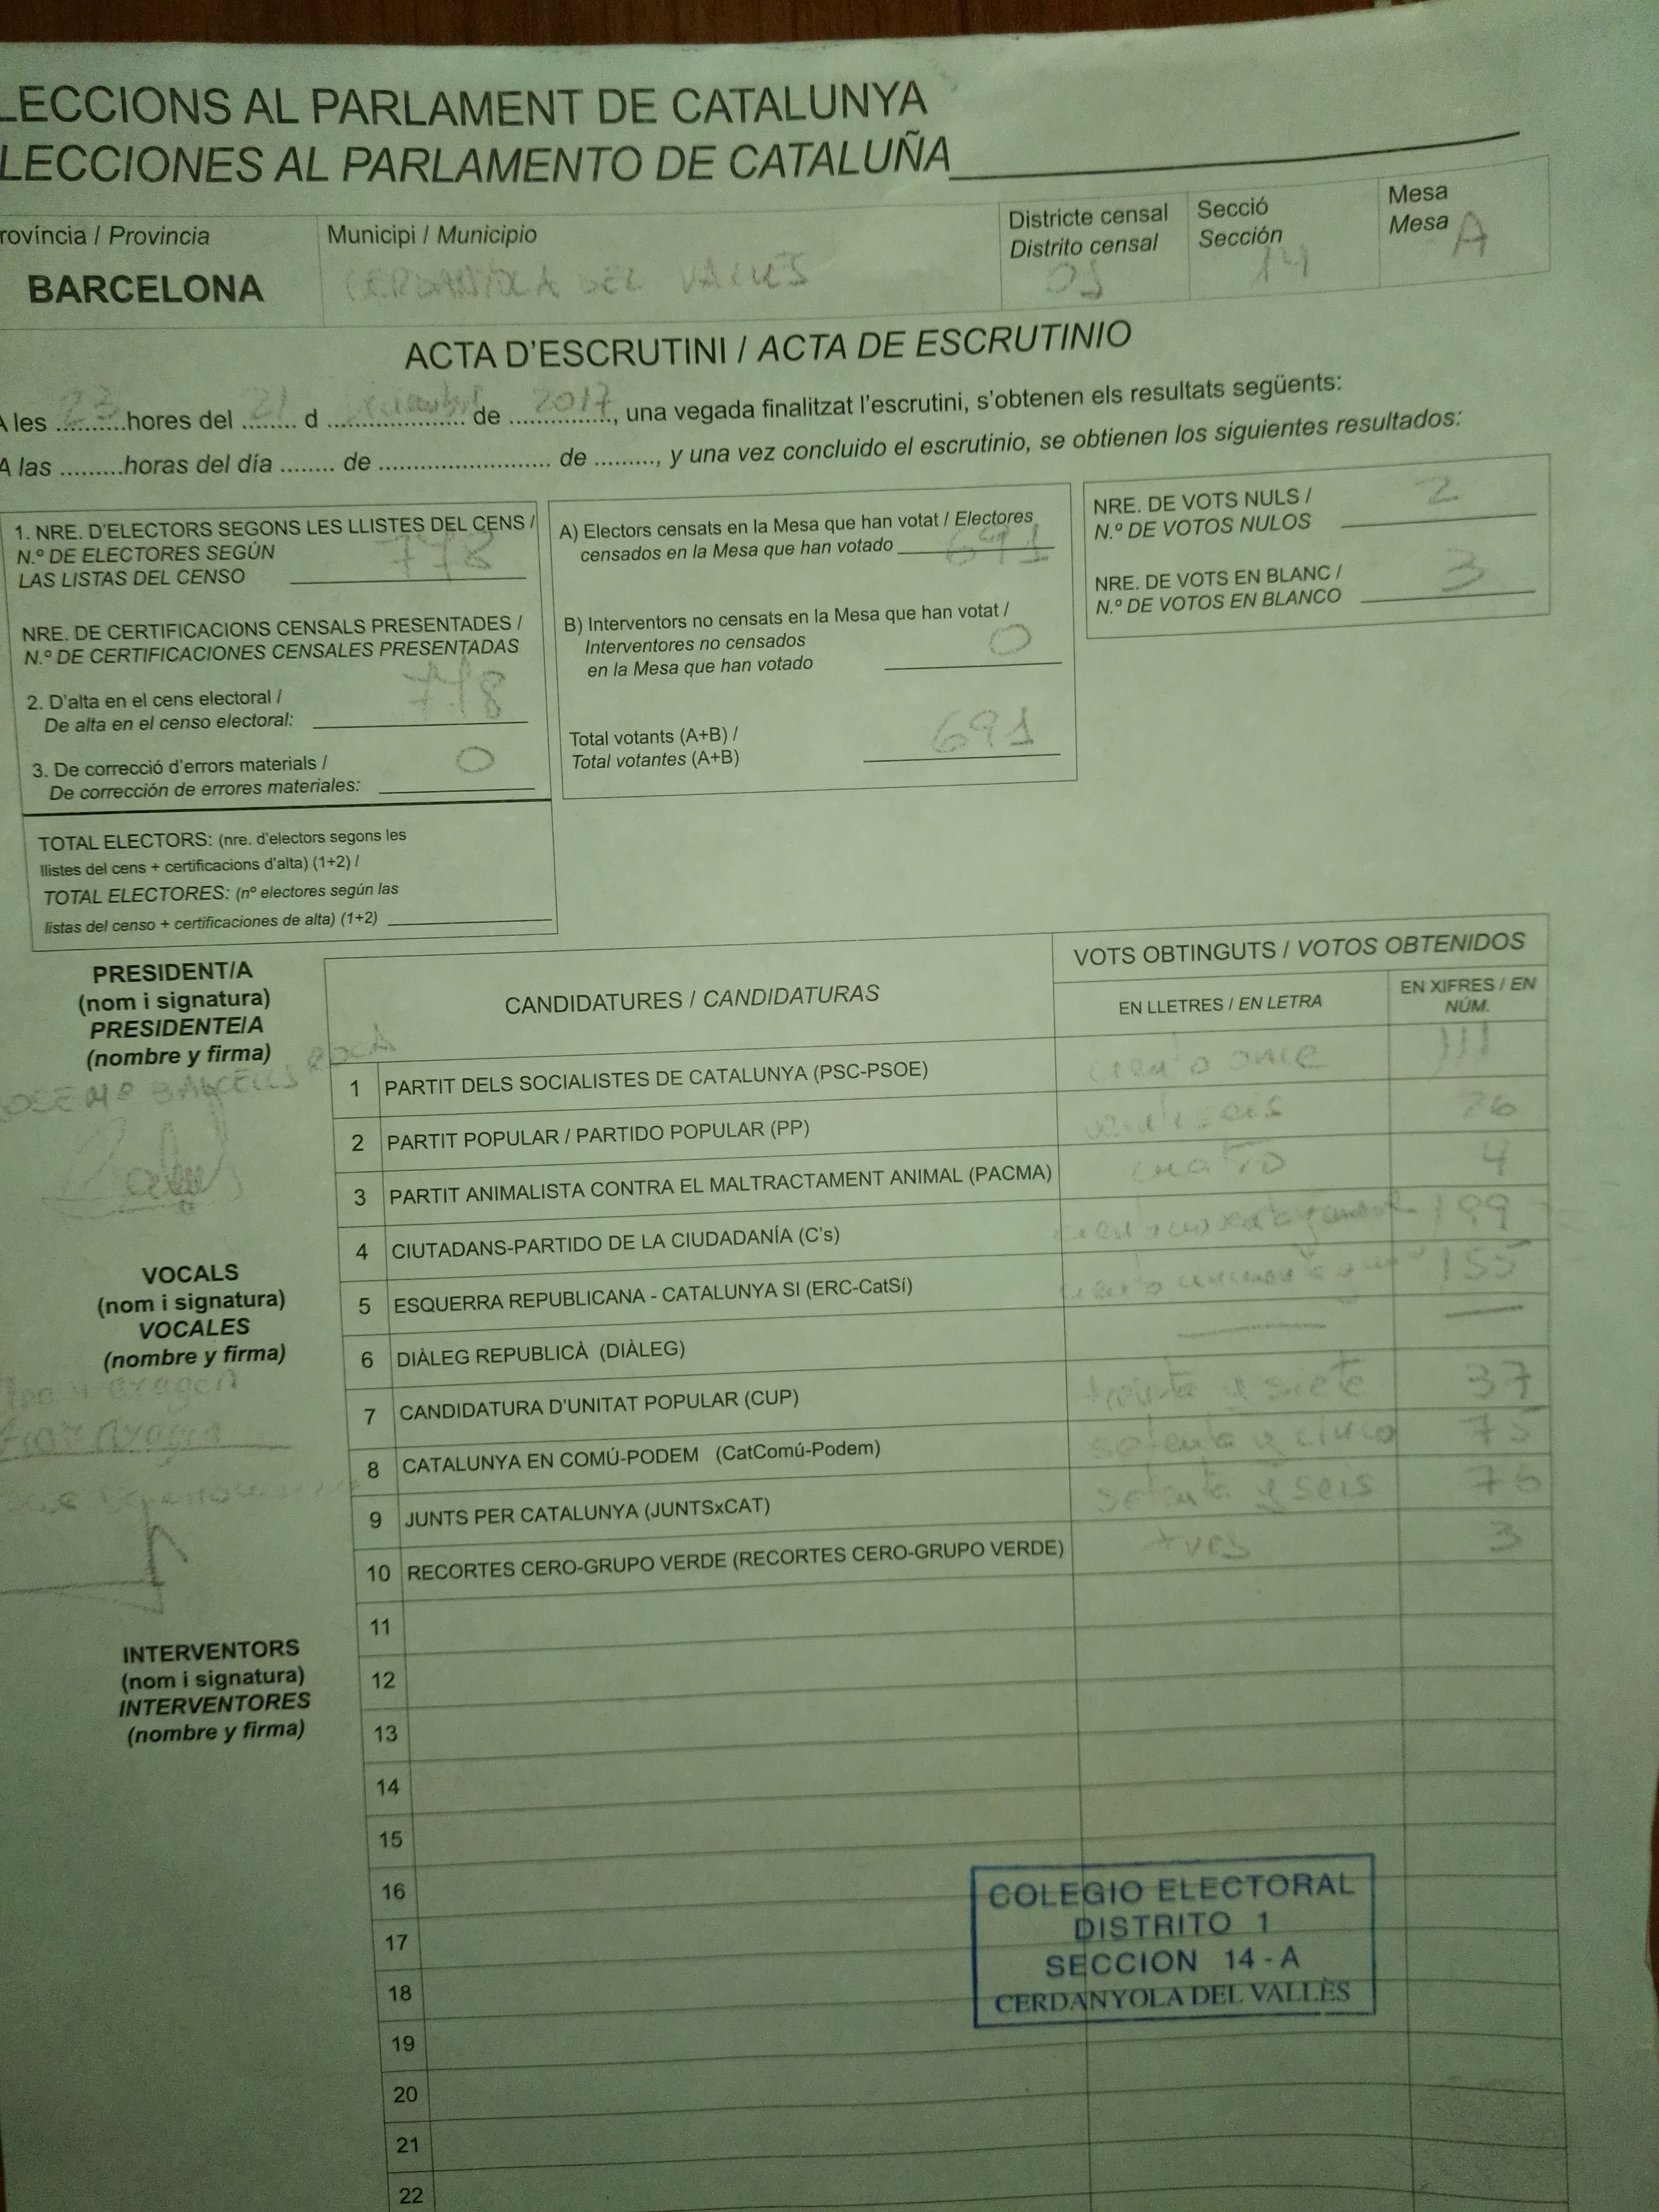 LECCIONS AL PARLAMENT DE CATALUNYA
LECCIONES AL PARLAMENTO DE CATALUÑA
rovíncia / Provincia
BARCELONA
Municipi / Municipio
CERDANYOLA DEL VALLÉS
Districte censal
Distrito censal
01
Secció
Sección
14
Mesa
Mesa A
ACTA D'ESCRUTINI / ACTA DE ESCRUTINIO
A les 23 hores del 21 d de 2017, una vegada finalitzat l'escrutini, s'obtenen els resultats següents:
A las .........horas del día ........ de .......................... de ........., y una vez concluido el escrutinio, se obtienen los siguientes resultados:
1. NRE. D'ELECTORS SEGONS LES LLISTES DEL CENS /
N.º DE ELECTORES SEGÚN
LAS LISTAS DEL CENSO 778
NRE. DE CERTIFICACIONS CENSALS PRESENTADES /
N.º DE CERTIFICACIONES CENSALES PRESENTADAS
2. D'alta en el cens electoral /
De alta en el censo electoral: 778
3. De correcció d'errors materials /
De corrección de errores materiales: 0
TOTAL ELECTORS: (nre. d'electors segons les
llistes del cens + certificacions d'alta) (1+2) /
TOTAL ELECTORES: (nº electores según las
listas del censo + certificaciones de alta) (1+2)
A) Electors censats en la Mesa que han votat / Electores
censados en la Mesa que han votado 691
B) Interventors no censats en la Mesa que han votat /
Interventores no censados
en la Mesa que han votado 0
Total votants (A+B) /
Total votantes (A+B) 691
NRE. DE VOTS NULS /
N.º DE VOTOS NULOS 2
NRE. DE VOTS EN BLANC /
N.º DE VOTOS EN BLANCO 3
PRESIDENT/A
(nom i signatura)
PRESIDENTE/A
(nombre y firma)
JOSE Mª BARCELLS ROCA
VOCALS
(nom i signatura)
VOCALES
(nombre y firma)
INTERVENTORS
(nom i signatura)
INTERVENTORES
(nombre y firma)
CANDIDATURES / CANDIDATURAS
VOTS OBTINGUTS / VOTOS OBTENIDOS
EN LLETRES / EN LETRA
EN XIFRES / EN
NÚM.
1 PARTIT DELS SOCIALISTES DE CATALUNYA (PSC-PSOE) ciento once 111
2 PARTIT POPULAR / PARTIDO POPULAR (PP)
3 PARTIT ANIMALISTA CONTRA EL MALTRACTAMENT ANIMAL (PACMA) cuatro 4
4 CIUTADANS-PARTIDO DE LA CIUDADANÍA (C's) 199
5 ESQUERRA REPUBLICANA - CATALUNYA SI (ERC-CatSí) 155
6 DIÀLEG REPUBLICÀ (DIÀLEG) — —
7 CANDIDATURA D'UNITAT POPULAR (CUP) treinta y siete 37
8 CATALUNYA EN COMÚ-PODEM (CatComú-Podem) setenta y cinco 75
9 JUNTS PER CATALUNYA (JUNTSxCAT) setenta y seis 76
10 RECORTES CERO-GRUPO VERDE (RECORTES CERO-GRUPO VERDE) tres 3
11
12
13
14
15
16
17
18
19
20
21
22
COLEGIO ELECTORAL
DISTRITO 1
SECCION 14 - A
CERDANYOLA DEL VALLÈS